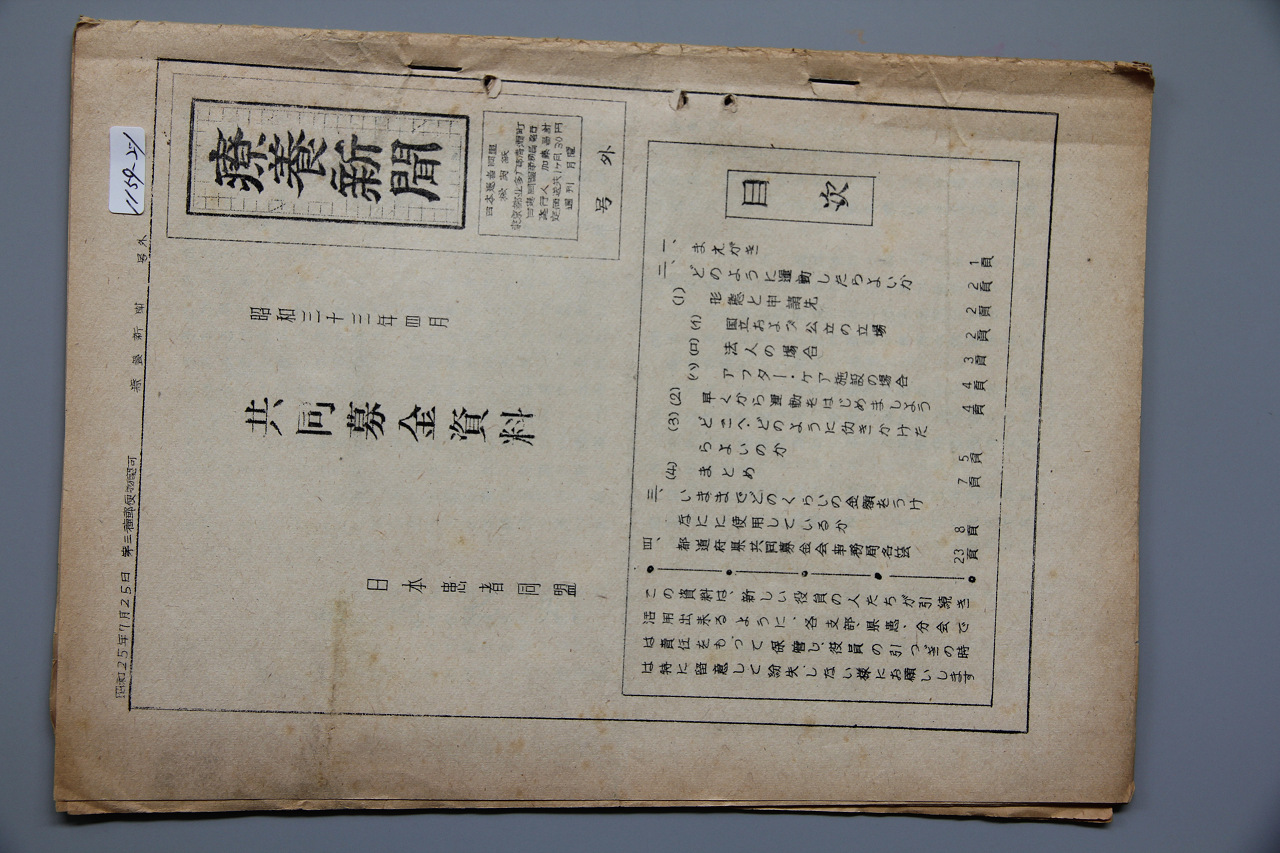 1159-27
昭和25年7月25日 第三種郵便物認可 療養新聞 号外
療養新聞
日本患者同盟
機関紙
発行人 加藤
週刊 月曜
号外
昭和三十三年四月
共同募金資料
日本患者同盟
目次
一、まえがき 1頁
二、どのように運動したらよいか 2頁
(1) 形態と申請先 2頁
(イ) 国立および公立の立場 2頁
(ロ) 法人の場合 3頁
(ハ) アフター・ケア施設の場合 4頁
(2) 早くから運動をはじめましよう 4頁
(3) どこへ・どのように仂きかけた
らよいのか 5頁
(4) まとめ 7頁
三、いままでどのくらいの金額をうけ
なにに使用しているか 8頁
四、都道府県共同募金会事務局名簿 23頁
この資料は、新しい役員の人たちが引続き
活用出来るように、各支部、県患、分会で
は責任をもつて保管し、役員の引つぎの時
は特に留意して紛失しない様にお願いします